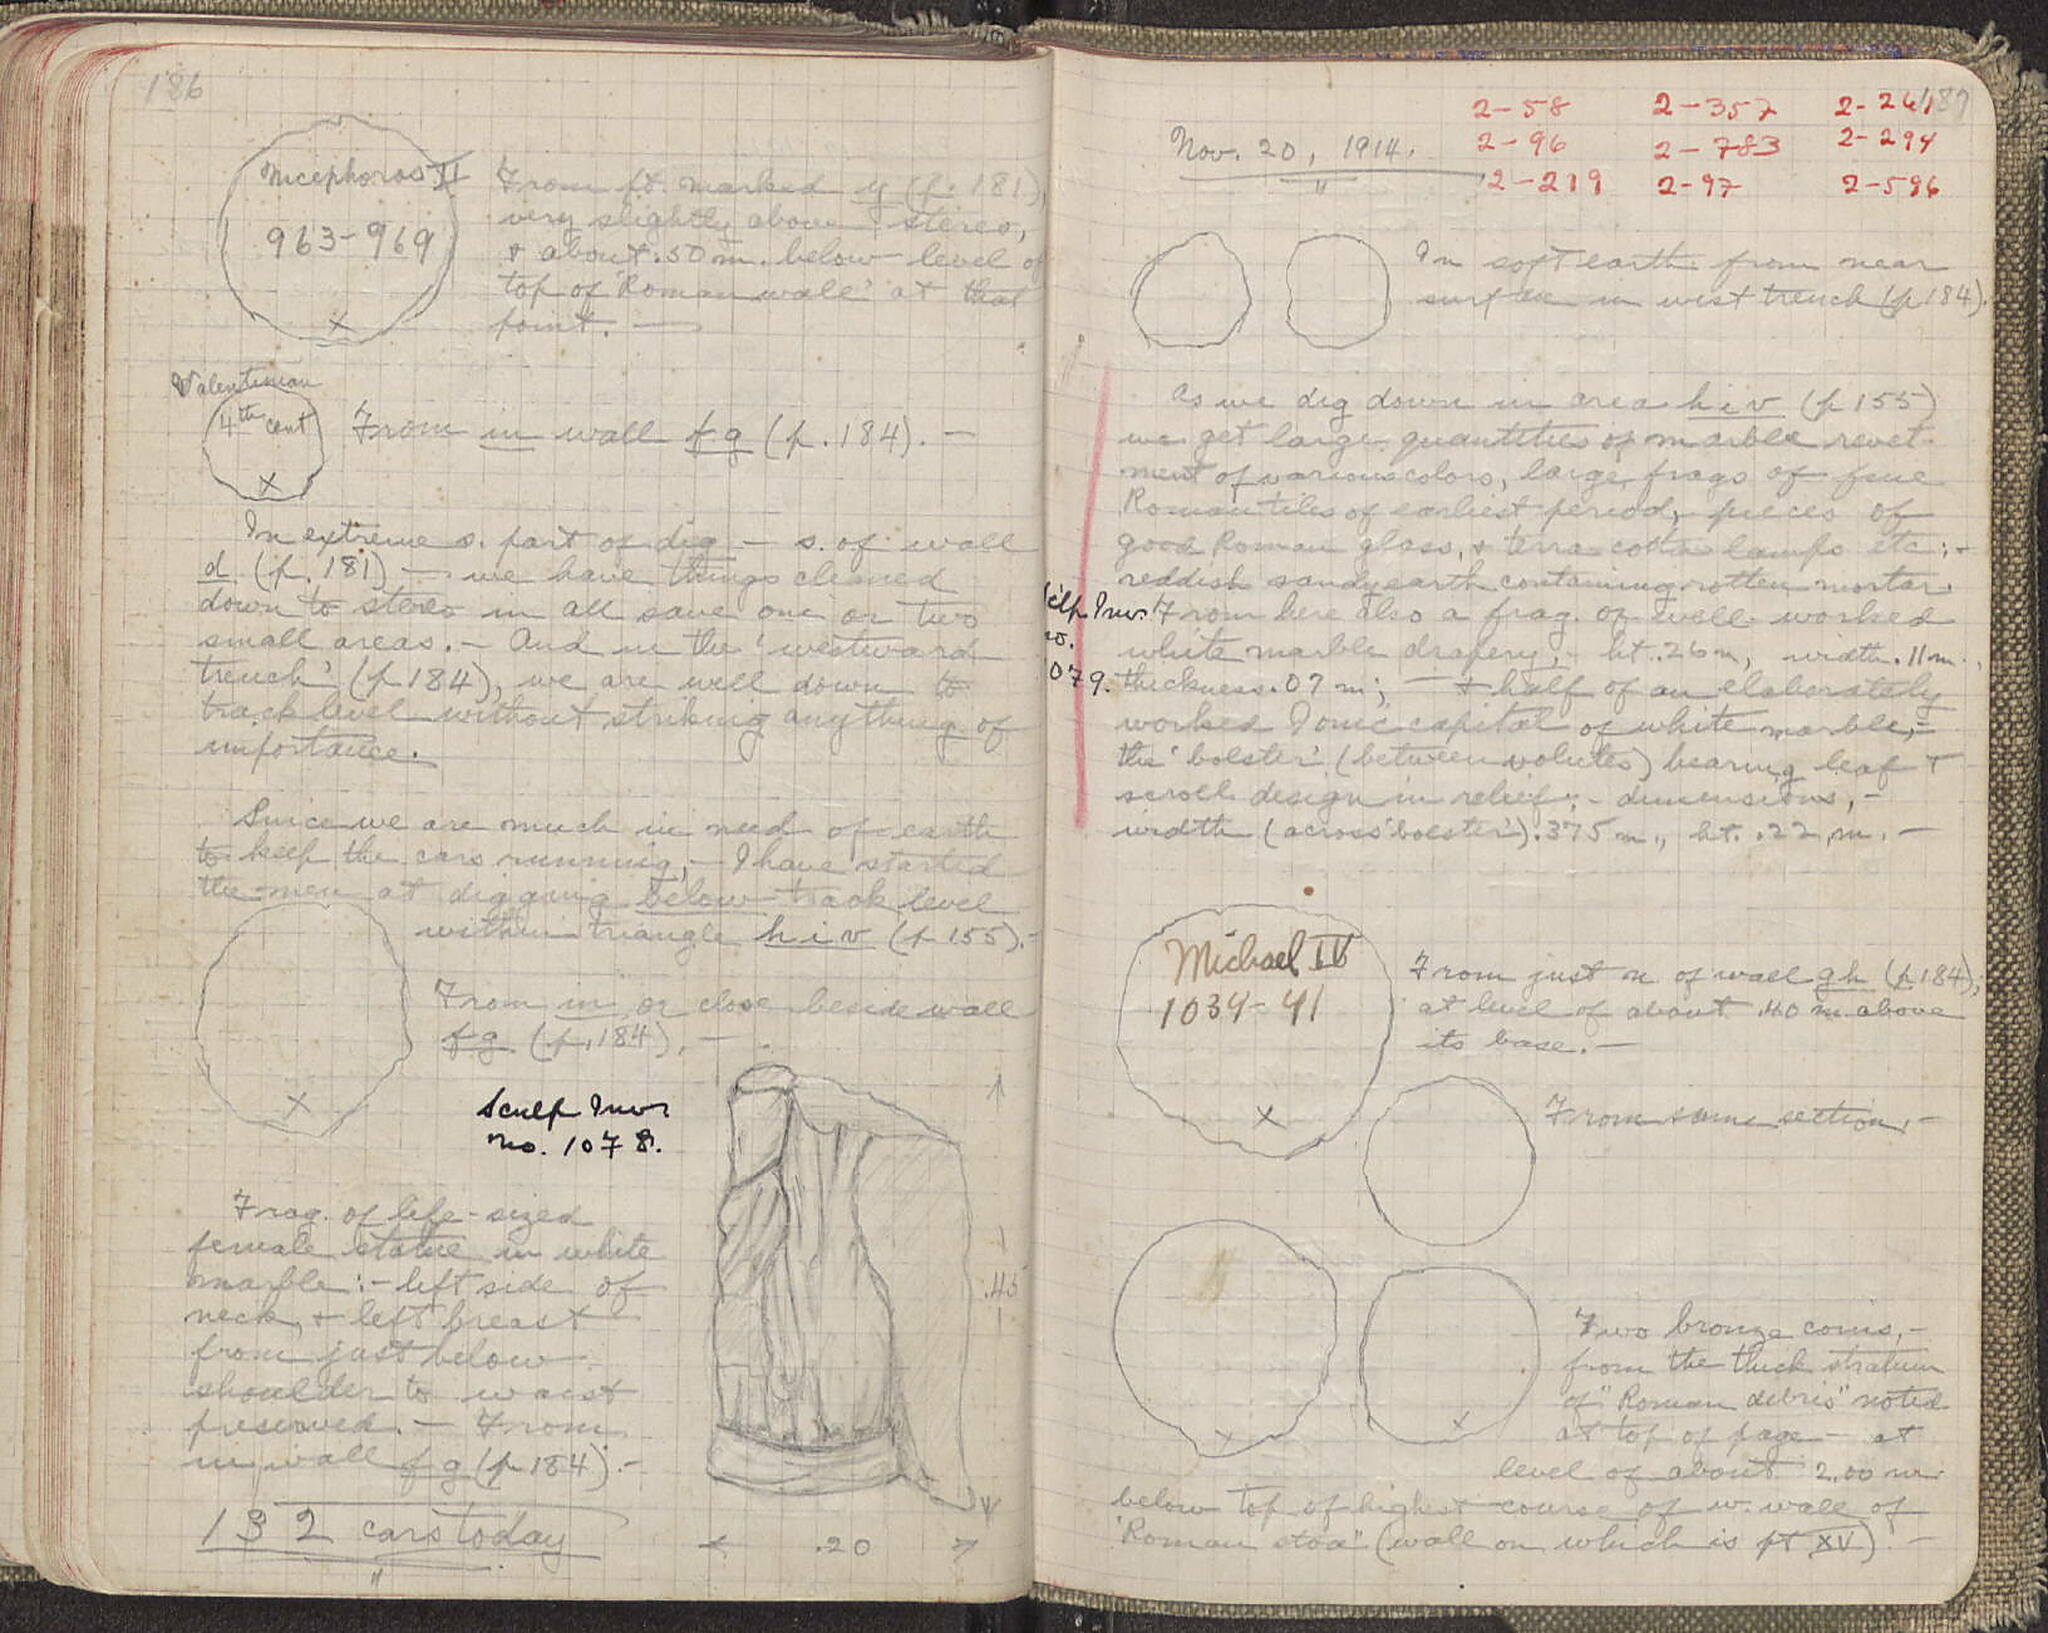 186
Nicephoros II
963-969
From pt. marked y (p. 181),
very slightly above stereo,
& about .50 m. below level of
top of 'Roman wall' at that
point. —
Valentinian
4th cent
X
From in wall fg (p. 184). —
In extreme s. part of dig — s. of wall
d (p. 181) — we have things cleaned
down to stereo in all save one or two
small areas. — And in the 'westward
trench' (p 184), we are well down to
track level without striking anything of
importance.
Since we are much in need of earth
to keep the cars running, — I have started
the men at digging below track level
within triangle h i v (p 155). —
From in or close beside wall
fg (p. 184). —
X
Sculp Invr
no. 1078.
Frag. of life-sized
female statue in white
marble: — left side of
neck, & left breast
from just below
shoulder to waist
preserved. — From
in wall fg (p 184). —
.45
.20
132 cars today
187
Nov. 20, 1914.
2-58 2-357 2-261
2-96 2-783 2-294
2-219 2-97 2-596
In soft earth from near
surface in west trench (p 184).
As we dig down in area h i v (p 155)
we get large quantities of marble revet-
ment of various colors, large frags of fine
Roman tiles of earliest period, pieces of
good Roman glass, & terra cotta lamps etc; —
reddish sandy earth containing rotten mortar.
Sculp Invr
no.
1079.
From here also a frag. of well worked
white marble drapery, — ht. .26 m, width .11 m.,
thickness .07 m; — & half of an elaborately
worked Ionic capital of white marble, —
the 'bolster' (between volutes) bearing leaf &
scroll design in relief; — dimensions, —
width (across 'bolster') .375 m., ht. .22 m. —
Michael IV
1034-41
X
From just n. of wall gh (p 184),
at level of about .40 m above
its base. —
From same section, —
Two bronze coins, —
from the thick stratum
of "Roman debris" noted
at top of page — at
level of about 2.00 m.
below top of highest course of w. wall of
"Roman stoa" (wall on which is pt XV). —
X
X